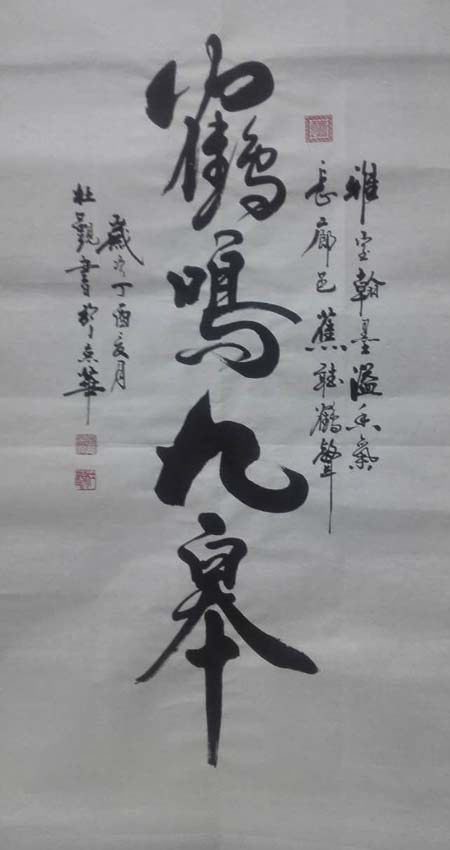 雅室翰墨溢香氣
長廊邑蕉聽鶴聲
鶴鳴九皋
歲次丁酉亥月
杜觀書於京華